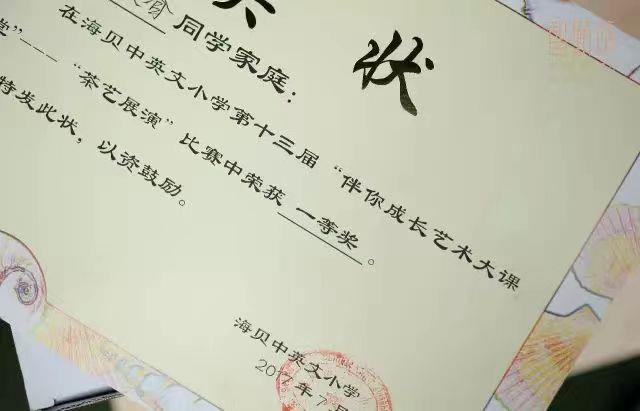 状
同学家庭：
在海贝中英文小学第十三届“伴你成长艺术大课
堂”---“茶艺展演”比赛中荣获 一等奖 。
特发此状，以资鼓励。
海贝中英文小学
2017年7月